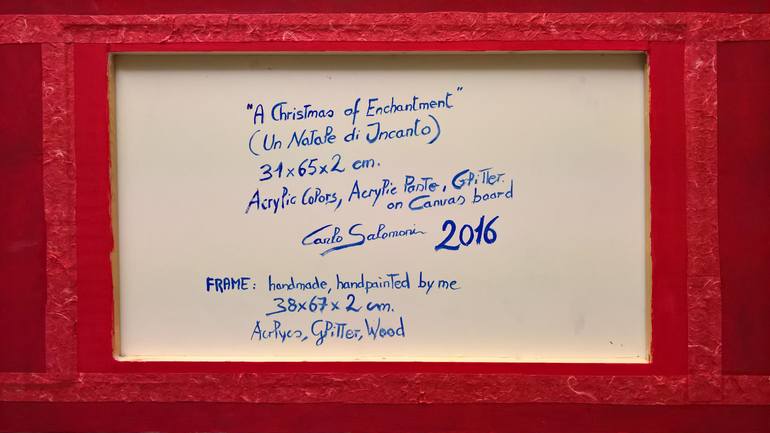 "A Christmas of Enchantment"
(Un Natale di Incanto)
31x65x2 cm.
Acrylic Colors, Acrylic Paste, Glitter.
on Canvas board
Carlo Salomoni 2016
FRAME: handmade, handpainted by me
38x67x2 cm.
Acrlycs, Glitter, Wood